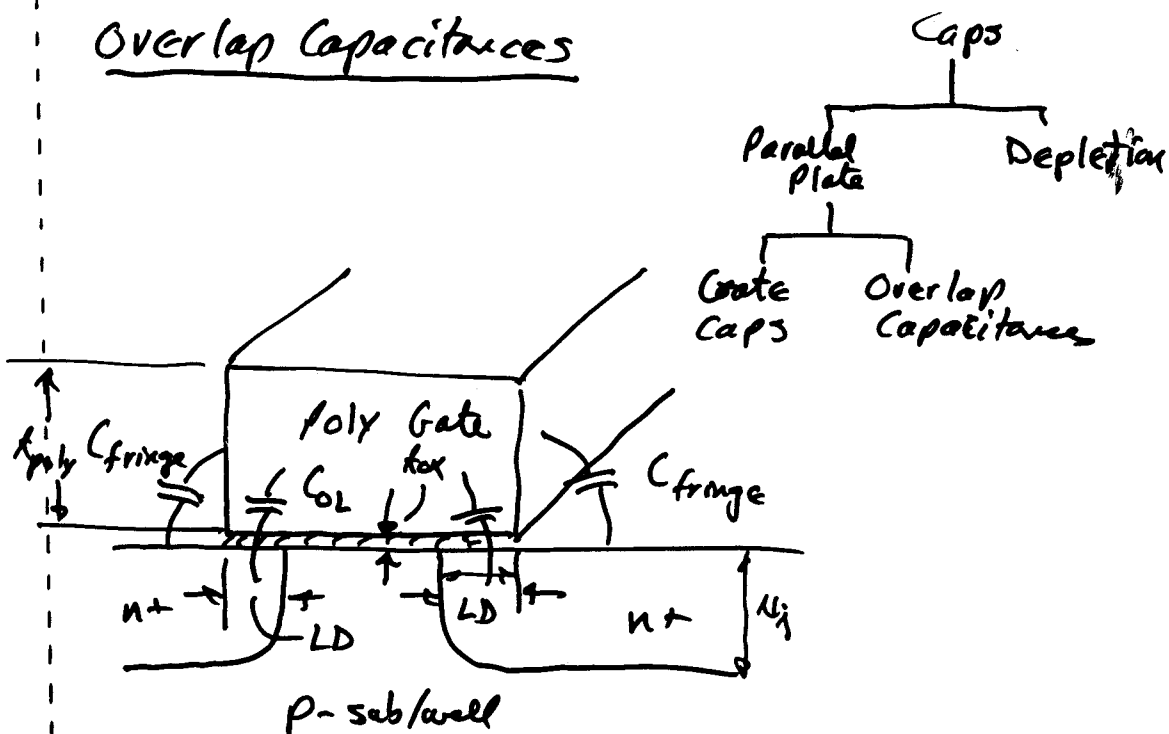 Overlap Capacitances
Caps
Parallel
Plate
Depletion
Gate
Caps
Overlap
Capacitances
Poly Gate
tpoly
Cfringe
COL
tox
Cfringe
n+
LD
LD
n+
xj
p-sub/well